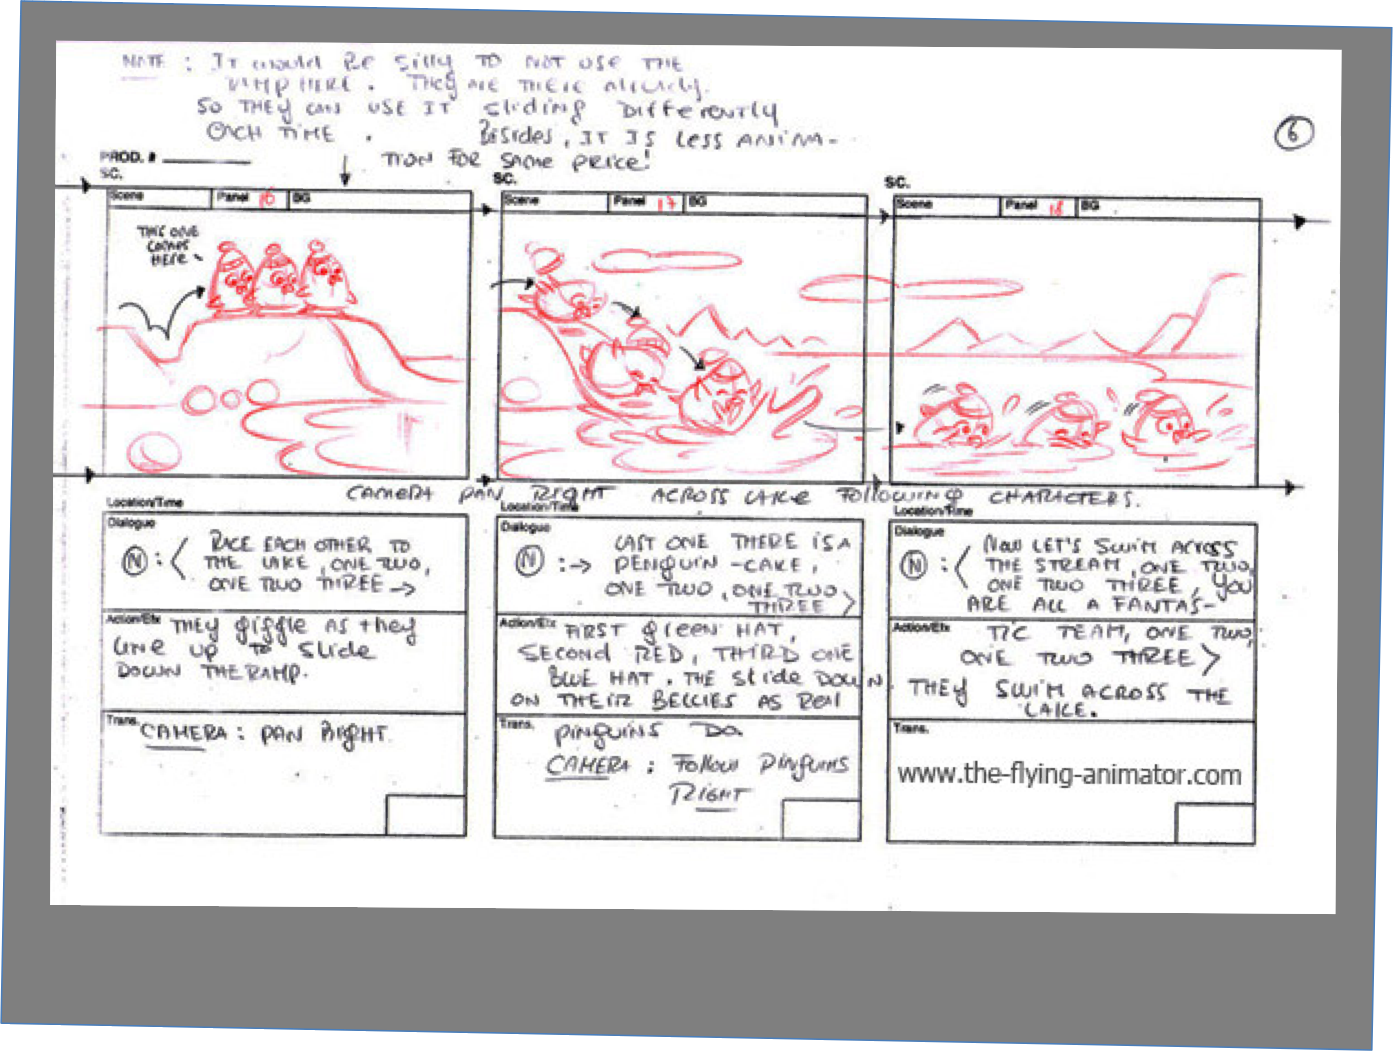 NOTE : IT would BE Silly TO NOT USE THE
RAMP HERE . THEY ARE THERE already.
SO THEY CAN USE IT sliding Differently
EACH TIME . Besides, IT IS LESS ANIMA-
TION FOR SAME PRICE!
6
PROD. #
SC.
Scene Panel 16 BG
THIS ONE
COMES
HERE
SC.
Scene Panel 17 BG
SC.
Scene Panel 18 BG
CAMERA PAN RIGHT ACROSS LAKE FOLLOWING CHARACTERS.
Location/Time
Dialogue
N : < RACE EACH OTHER TO
THE LAKE , ONE TWO,
ONE TWO THREE →
Action/Efx THEY giggle AS they
line UP TO Slide
DOWN THE RAMP.
Trans. CAMERA : PAN RIGHT.
Location/Time
Dialogue
N : → LAST ONE THERE IS A
PENGUIN -CAKE,
ONE TWO , ONE TWO
THREE >
Action/Efx FIRST green HAT,
SECOND RED, THIRD ONE
BLUE HAT . THE slide DOWN
ON THEIR BELLIES AS REAL
Trans. PINGUINS DO.
CAMERA : Follow PINGUINS
RIGHT
Location/Time
Dialogue
N : < NOW LET'S SWIM ACROSS
THE STREAM, ONE TWO,
ONE TWO THREE, YOU
ARE ALL A FANTAS-
Action/Efx TIC TEAM, ONE TWO,
ONE TWO THREE >
THEY SWIM ACROSS THE
LAKE.
Trans.
www.the-flying-animator.com